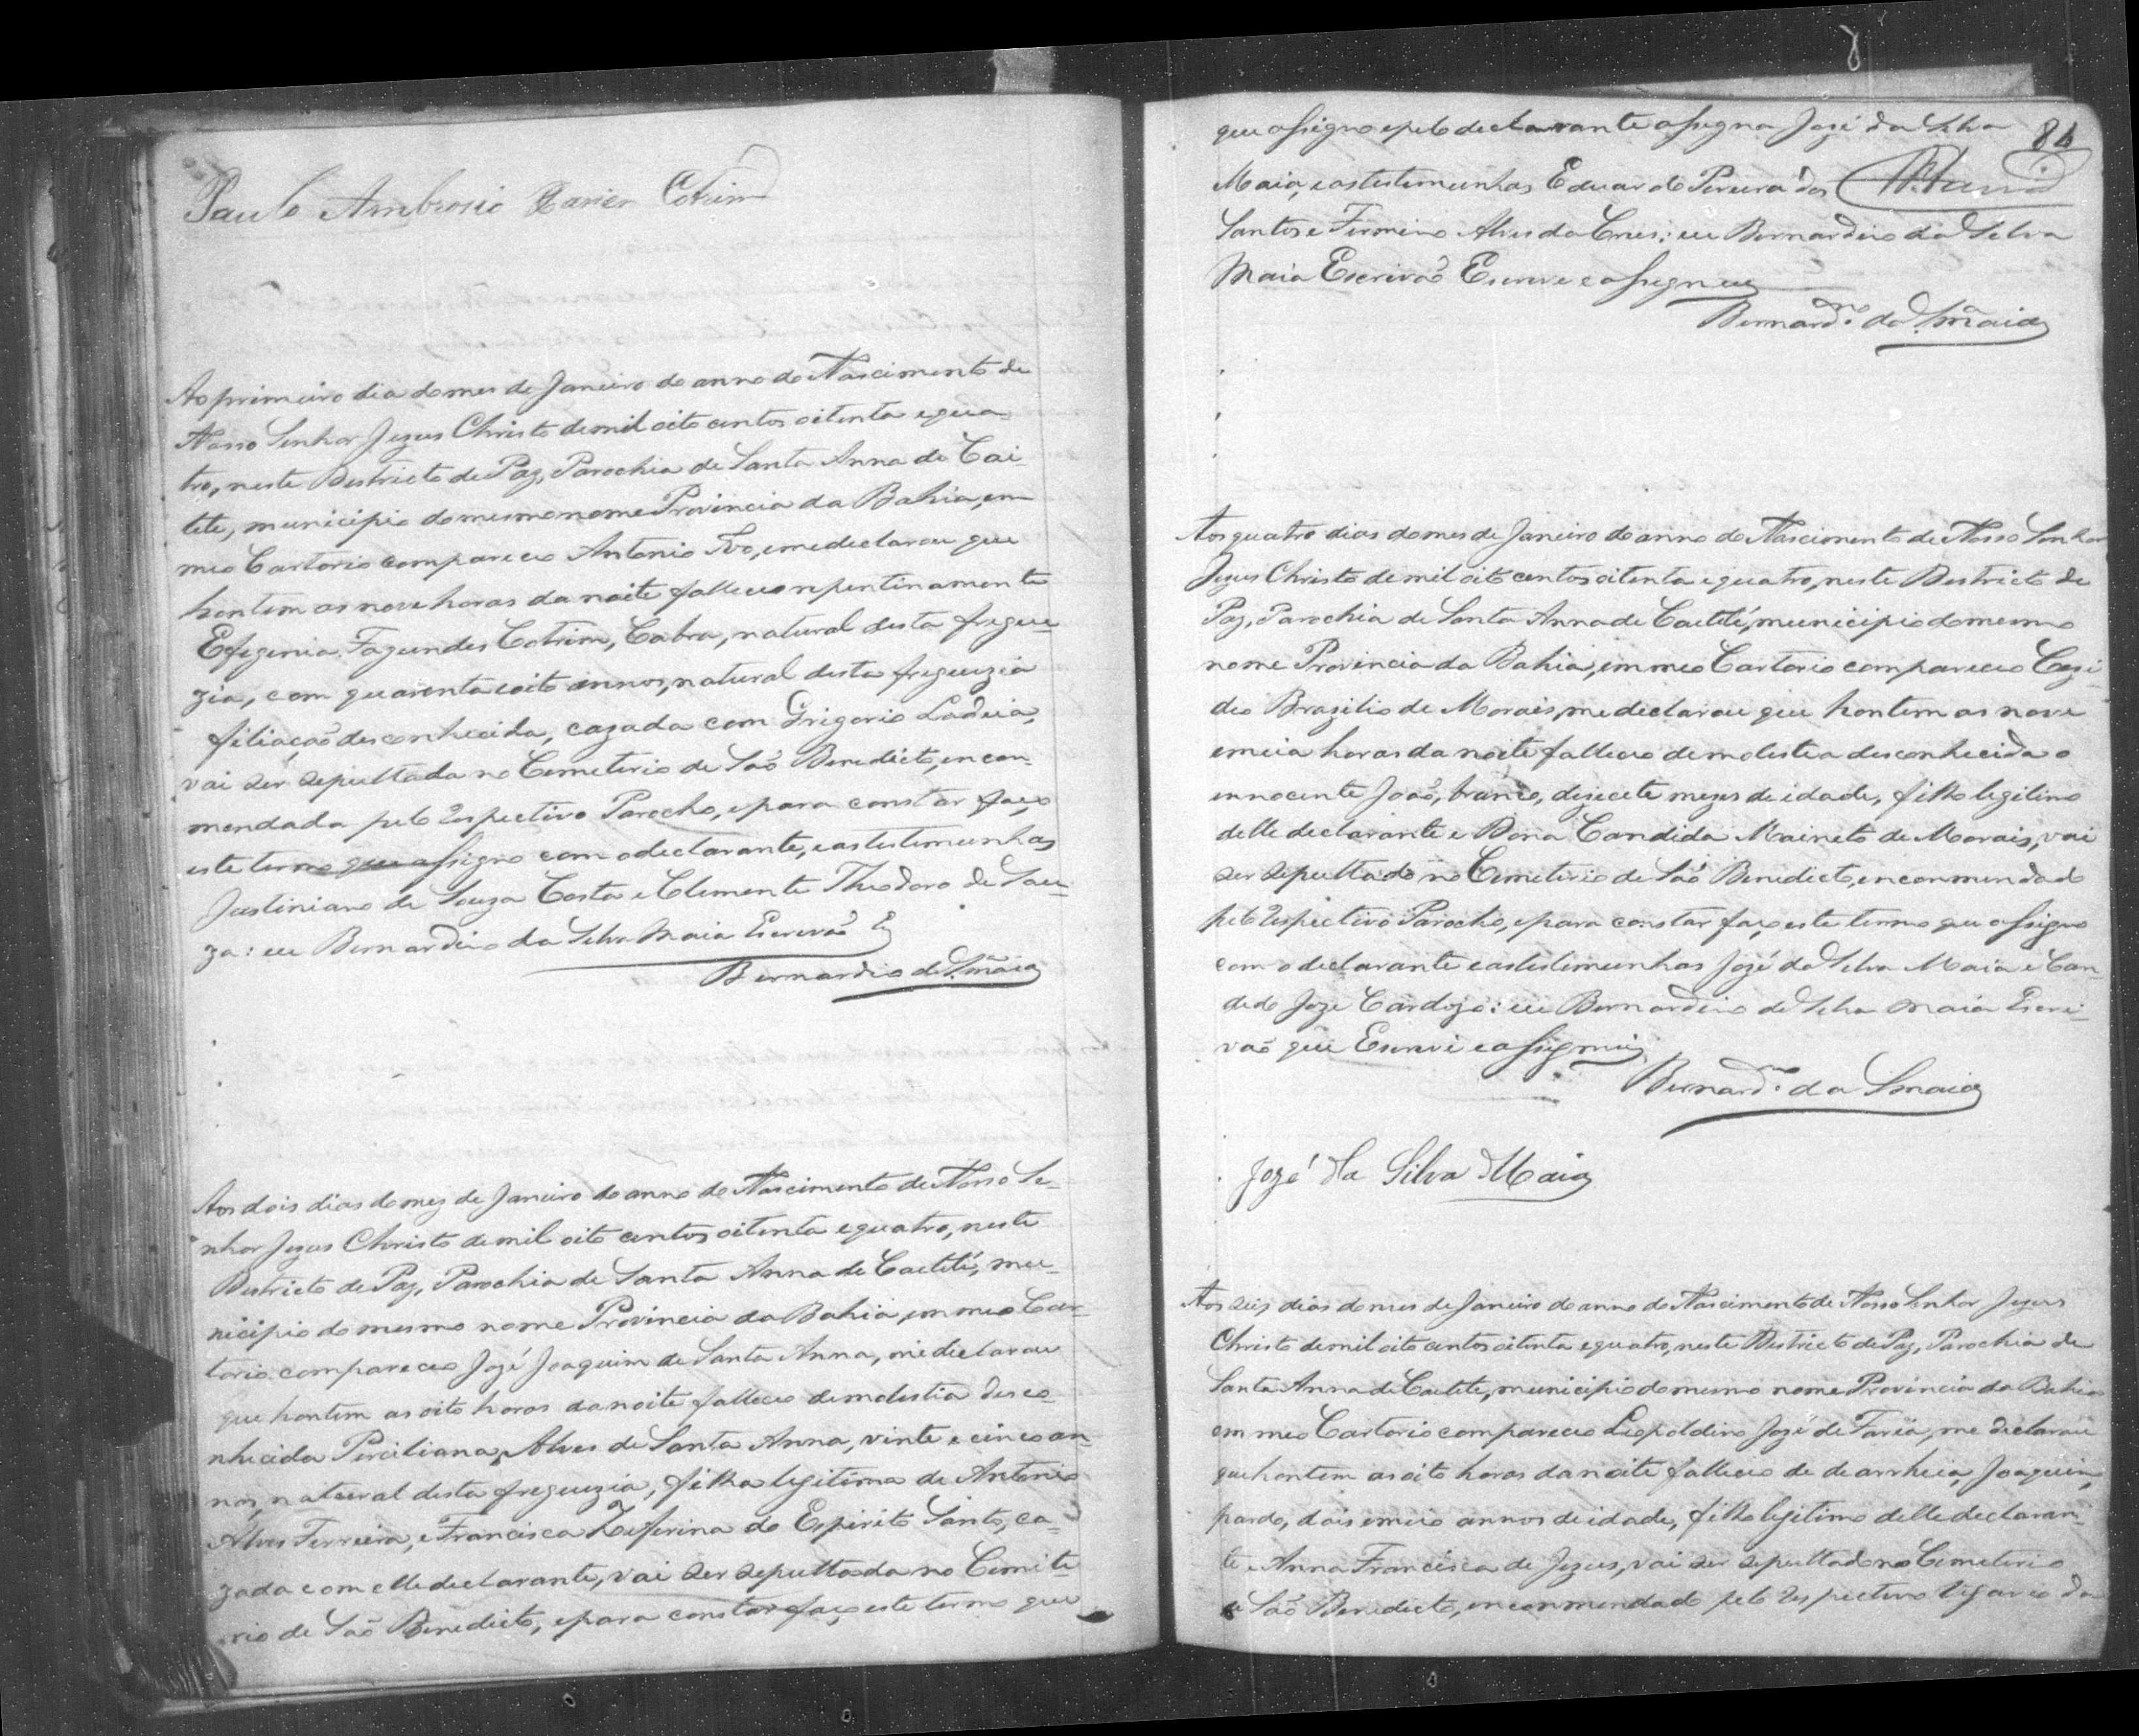 Paulo Ambrosio Xavier Cotrim
Ao primeiro dia do mes de Janeiro do anno do Nascimento de
Nosso Senhor Jezus Christo de mil oito centos oitenta e qua-
tro, neste Destricto de Paz, Parochia de Santa Anna de Cai-
tete, municipio do mesmo nome Provincia da Bahia, em
meo Cartorio compareceo Antonio Ivo, e me declarou que
hontem as nove horas da noite falleceo repentinamente
Efegenia Fagundes Cotrim, Cabra, natural desta fregue-
zia, com quarenta e oito annos, natural desta freguezia
filiação desconhecida, cazada com Grigorio Ladeia,
vai ser sepultada no Cemeterio de São Benedicto, encom-
mendada pelo respectivo Parocho, e para constar faço
este termo que assigno com o declarante, e as testemunhas
Justiniano de Souza Costa e Clemente Theodoro de Sou-
za: eu Bernardino da Silva Maia Escrevaõ E
Bernardino da S.ª Maia
Aos dois dias do mez de Janeiro do anno do Nascimento de Nosso Se-
nhor Jezus Christo de mil oito centos oitenta e quatro, neste
Destricto de Paz, Parochia de Santa Anna de Caetité, mu-
nicipio do mesmo nome Provincia da Bahia, em meo Car-
torio compareceo Jozé Joaquim de Santa Anna, me declarou
que hontem as oito horas da noite falleceo de molestia desco-
nhecida Perciliana Alves de Santa Anna, vinte e cinco an-
nos, natural desta freguezia, filha legitima de Antonio
Alves Ferreira, e Francisca Zeferina do Espirito Santo, ca-
zada com elle declarante, vai ser sepultada no Cemite-
rio de São Benedicto, e para constar faço este termo que
84
que assigno e pelo declarante assigna Jozé da Silva
Maia, e as testemunhas Eduardo Pereira dos
Santos e Firmino Alves da Cruz: eu Bernardino da Silva
Maia Escrivaõ Escrevi e assignei
Bernard.no da S.ª Maia
Aos quatro dias do mes de Janeiro do anno do Nascimento de Nosso Senhor
Jezus Christo de mil oito centos oitenta e quatro, neste Destricto de
Paz, Parochia de Santa Anna de Caetité, municipio do mesmo
nome Provincia da Bahia, em meo Cartorio compareceo Cezi-
dio Brazilio de Morais, me declarou que hontem as nove
e meia horas da noite falleceo de molestia desconhecida o
ennocente João, branco, dezecete mezes de idade, filho legitimo
delle declarante e Dona Candida Maineto de Morais, vai
ser sepultado no Cemeterio de São Benedicto, encommendado
pelo respectivo Parocho, e para constar faço este termo que assigno
com o declarante e as testemunhas Jozé da Silva Maia e Can-
dido Joze Cardozo: eu Bernardino da Silva Maia Escri-
vaõ que Escrevi e assignei
Bernard.no da S Maia
Jozé da Silva Maia
Aos seis dias do mes de Janeiro do anno do Nascimento de Nosso Senhor Jezus
Christo de mil oito centos oitenta e quatro, neste Destricto de Paz, Parochia de
Santa Anna de Caetete, municipio do mesmo nome Provincia da Bahia
em meo Cartorio compareceo Liopoldino Jozé de Faria, me declarou
que hontem as oito horas da noite falleceo de dearrheia, Joaquim,
pardo, dois e meio annos de idade, filho legitimo delle declaran-
te e Anna Francisca de Jezus, vai ser sepultado no Cemeterio
de São Benedicto, encommendado pelo respectivo Vigario da